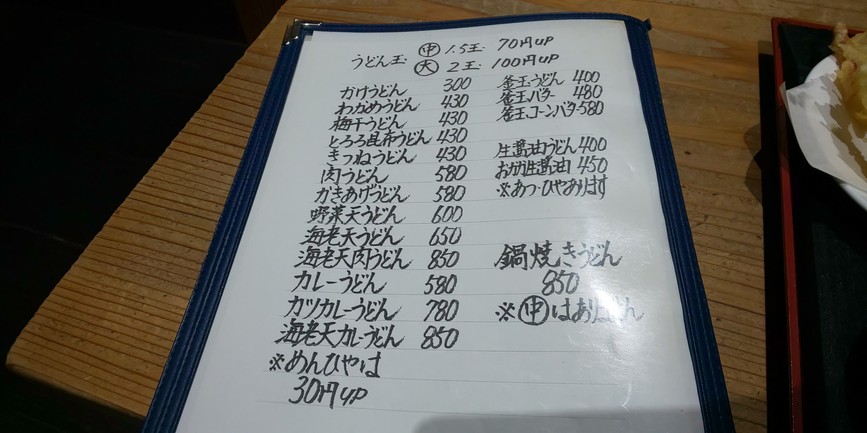 うどん玉 ㊥ 1.5玉 70円up
㊅ 2玉 100円up
かけうどん 300
わかめうどん 430
梅干うどん 430
とろろ昆布うどん 430
きつねうどん 430
肉うどん 580
かきあげうどん 580
野菜天うどん 600
海老天うどん 650
海老天肉うどん 850
カレーうどん 580
カツカレーうどん 780
海老天カレーうどん 850
※めんひやは
30円up
釜玉うどん 400
釜玉バター 480
釜玉コーンバター 580
生醤油うどん 400
おろし生醤油 450
※あつ・ひやあります
鍋焼きうどん
850
※㊥はありません